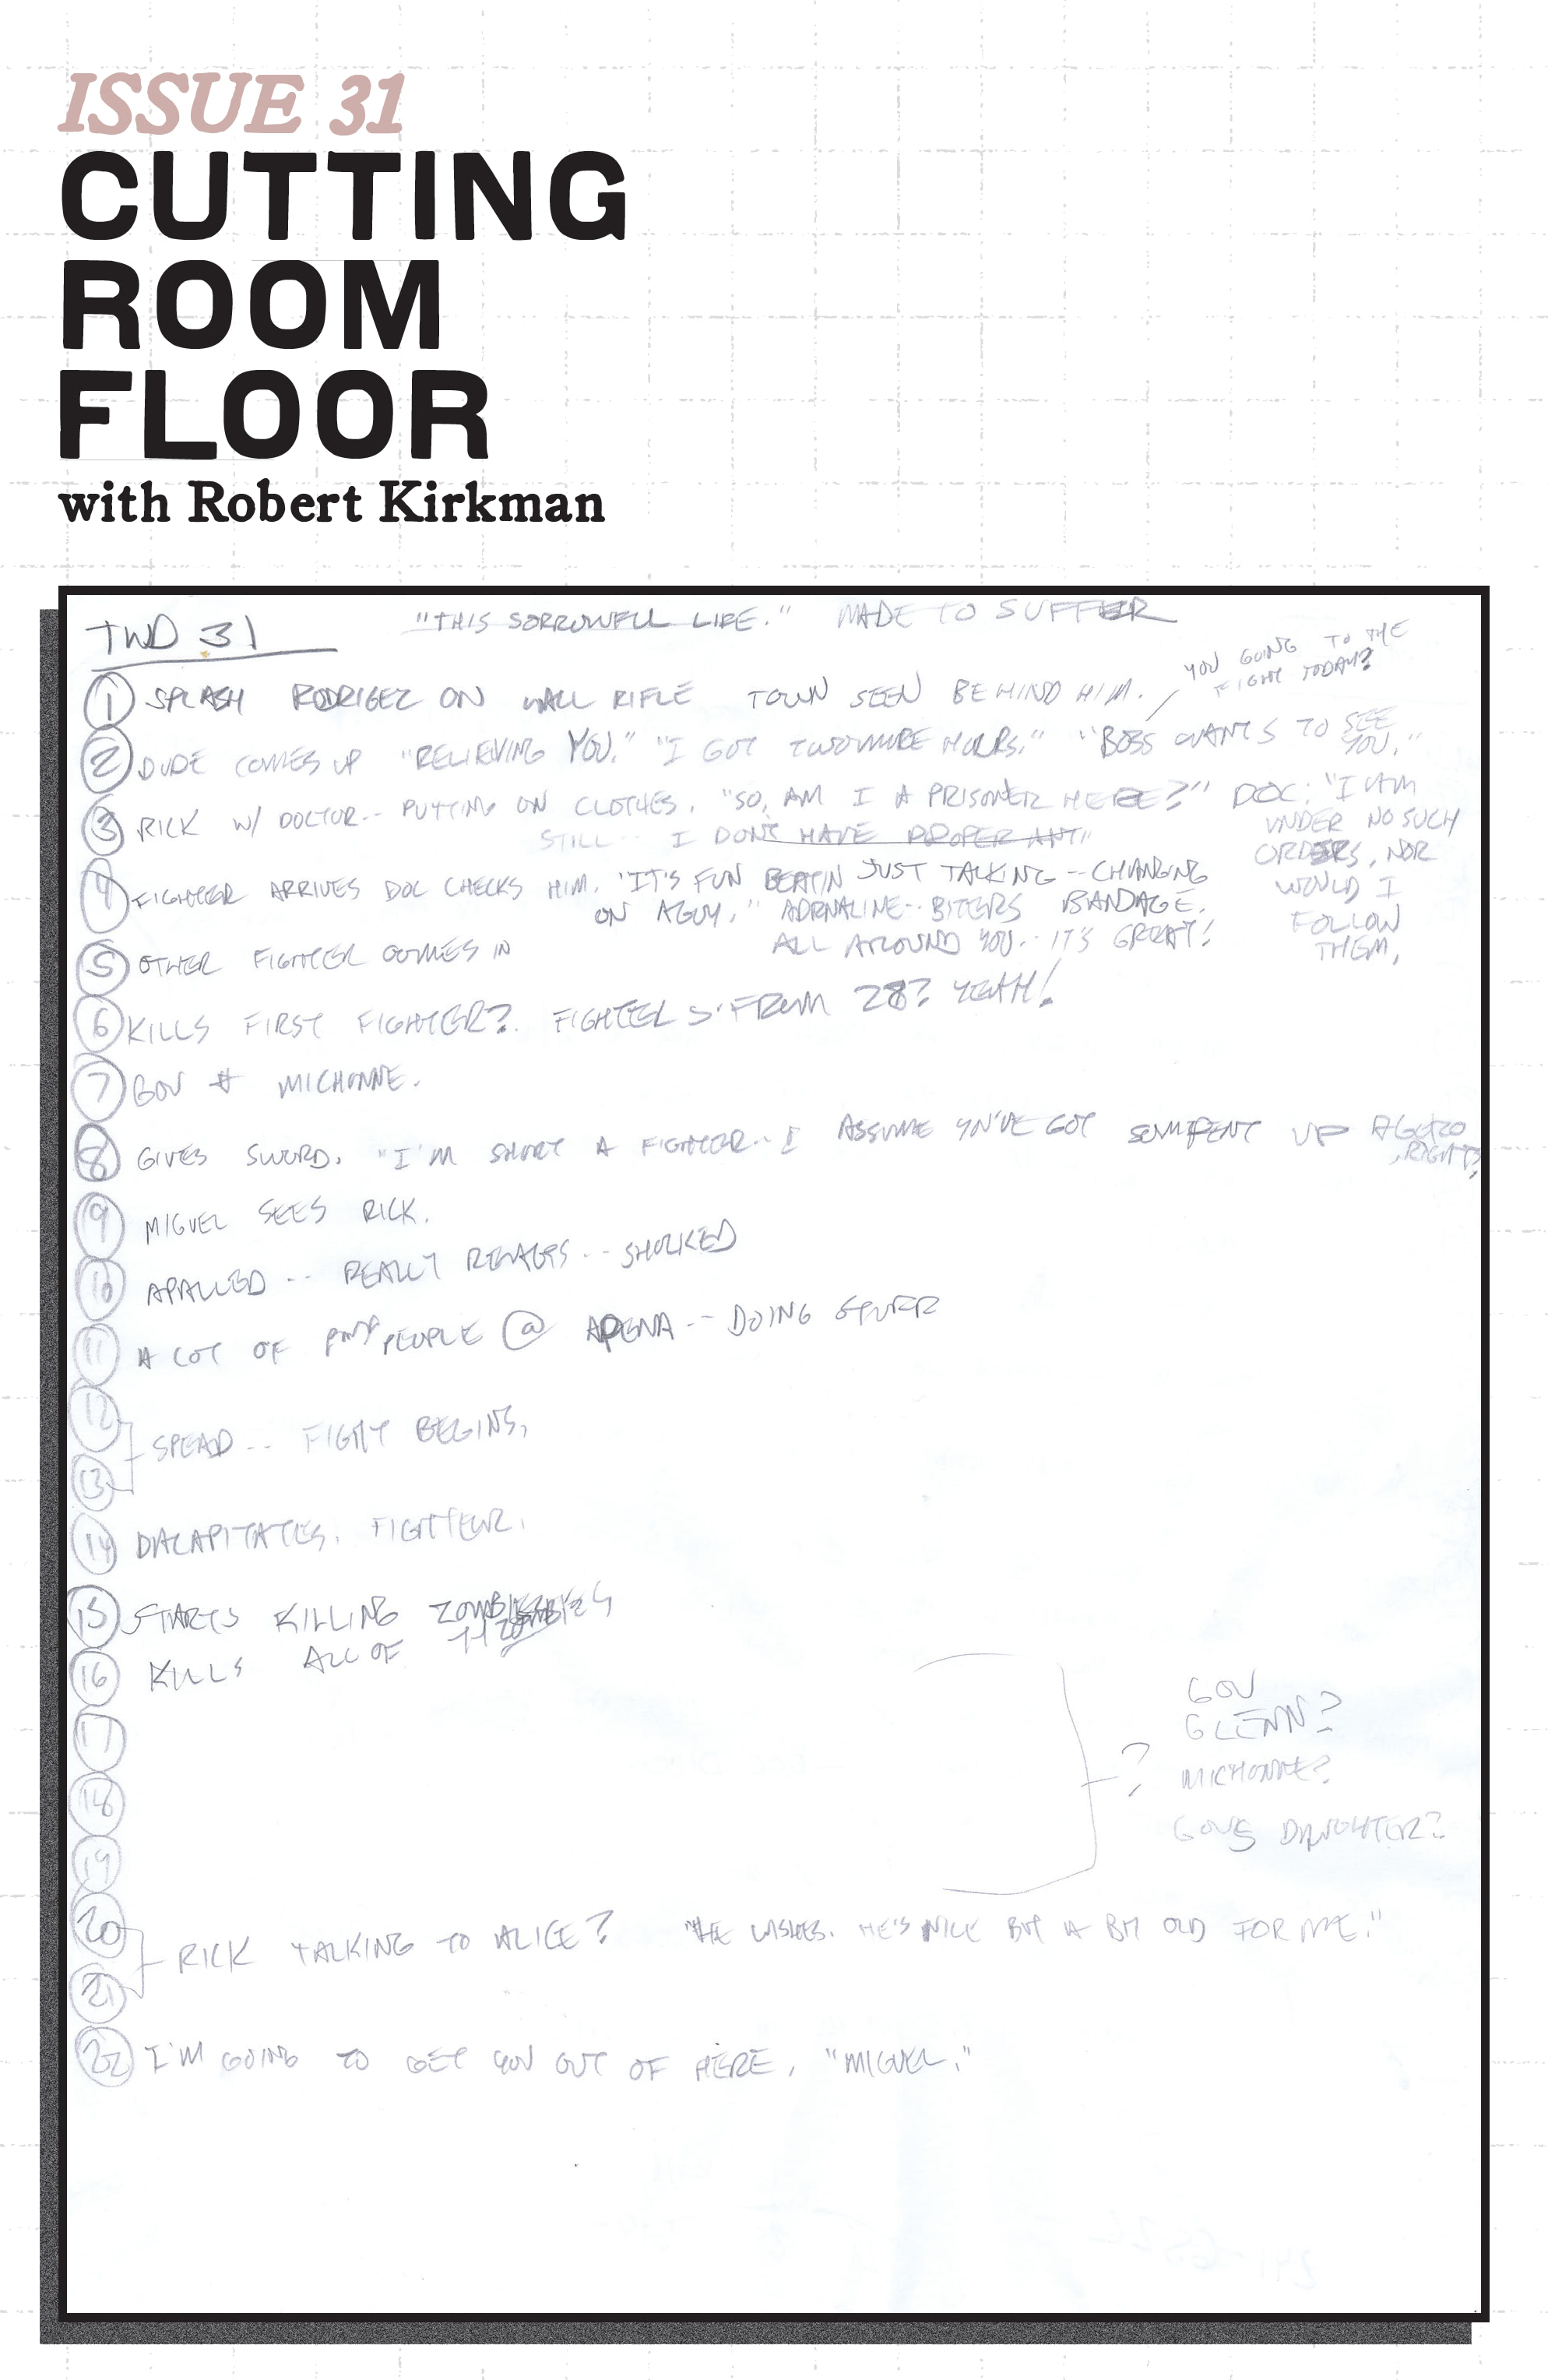 ISSUE 31
CUTTING
ROOM
FLOOR
with Robert Kirkman
TWD 31 "THIS SORROWFULL LIFE." MADE TO SUFFER
YOU GOING TO THE
FIGHT TODAY?
1 SPLASH RODRIGEZ ON WALL RIFLE TOWN SEEN BEHIND HIM.
2 DUDE COMES UP "RELIEVING YOU." "I GOT TWO MORE HOURS." "BOSS WANTS TO SEE
YOU."
3 RICK W/ DOCTOR-- PUTTING ON CLOTHES. "SO, AM I A PRISONER HERE?" DOC: "I AM
UNDER NO SUCH
ORDERS, NOR
WOULD I
FOLLOW
THEM,
STILL -- I DON'T HAVE PROPER ANTI"
4 FIGHTER ARRIVES DOC CHECKS HIM. "IT'S FUN BEATIN JUST TALKING -- CHANGING
ON A GUY." ADRNALINE-- BITERS BANDAGE.
ALL AROUND YOU-- IT'S GREAT!
5 OTHER FIGHTER COMES IN
6 KILLS FIRST FIGHTER? FIGHTER S' FROM 28? YEAH!
7 GOV & MICHONNE.
8 GIVES SWORD. "I'M SHORT A FIGHTER-- I ASSUME YOU'VE GOT SOME PENT UP AGGRO
, RIGHT?
9 MIGUEL SEES RICK.
10 APALLED -- REALLY -- SHOCKED
11 A LOT OF PEOPLE @ ARENA -- DOING STUFF
12
13 SPEAD -- FIGHT BEGINS,
14 DACAPITATES. FIGHTER.
15 STARTS KILLING ZOMBIES
16 KILLS ALL OF ZOMBIES
17
18
19
? GOV
GLENN?
MICHONNE?
GOVS DAUGHTER?
20
21 RICK TALKING TO ALICE? "HE WISHES. HE'S NICE BUT A BIT OLD FOR ME."
22 I'M GOING TO GET YOU OUT OF HERE, "MIGUEL."